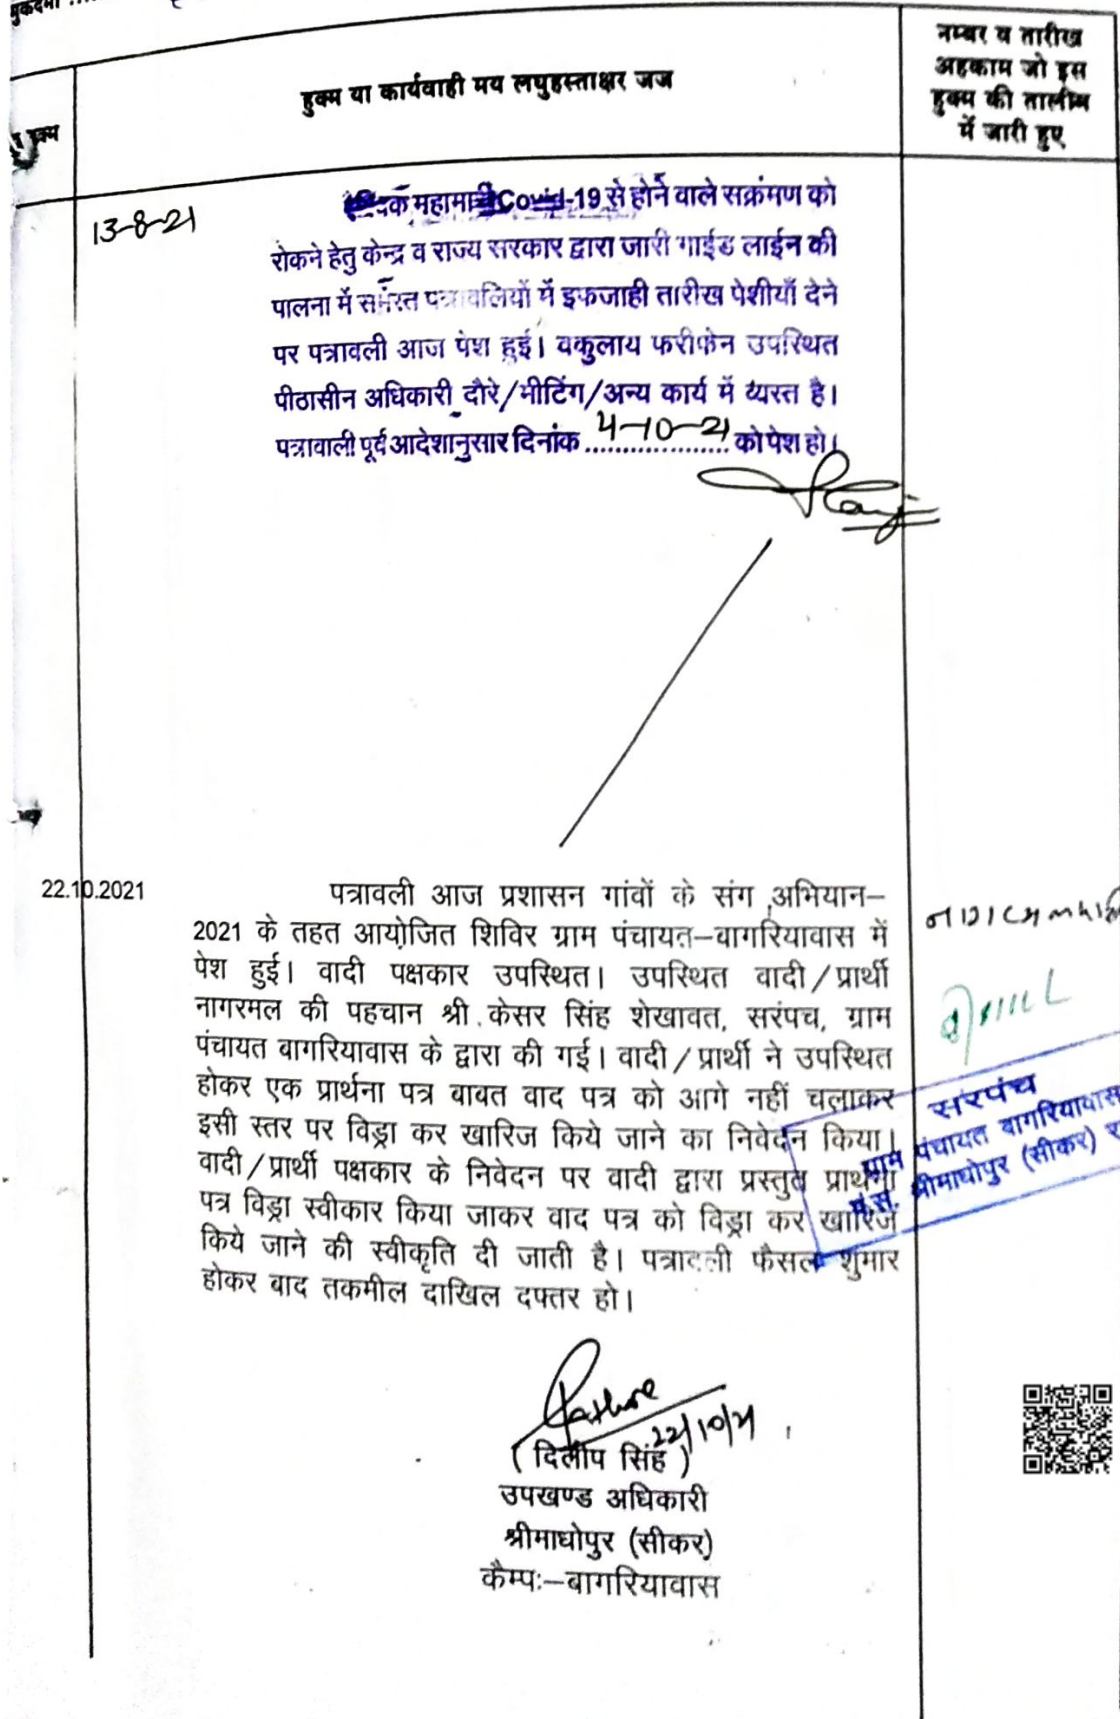 मुकदमा
हुक्म
हुक्म या कार्यवाही मय लघुहस्ताक्षर जज
नम्बर व तारीख
अहकाम जो इस
हुक्म की तालीम
में जारी हुए
13-8-21
महामारी Covid-19 से होने वाले सक्रंमण को
रोकने हेतु केन्द्र व राज्य सरकार द्वारा जारी गाईड लाईन की
पालना में समस्त पत्रावलियों में इफजाही तारीख पेशीयाँ देने
पर पत्रावली आज पेश हुई। वकुलाय फरीकेन उपस्थित
पीठासीन अधिकारी दौरे/मीटिंग/अन्य कार्य में व्यस्त है।
पत्रावाली पूर्व आदेशानुसार दिनांक 4-10-21 को पेश हो।
22.10.2021
पत्रावली आज प्रशासन गांवों के संग अभियान–
2021 के तहत आयोजित शिविर ग्राम पंचायत–बागरियावास में
पेश हुई। वादी पक्षकार उपस्थित। उपस्थित वादी/प्रार्थी
नागरमल की पहचान श्री केसर सिंह शेखावत, सरंपच, ग्राम
पंचायत बागरियावास के द्वारा की गई। वादी/प्रार्थी ने उपस्थित
होकर एक प्रार्थना पत्र बाबत वाद पत्र को आगे नहीं चलाकर
इसी स्तर पर विड्रा कर खारिज किये जाने का निवेदन किया।
वादी/प्रार्थी पक्षकार के निवेदन पर वादी द्वारा प्रस्तुत प्रार्थना
पत्र विड्रा स्वीकार किया जाकर वाद पत्र को विड्रा कर खारिज
किये जाने की स्वीकृति दी जाती है। पत्रावली फैसल शुमार
होकर बाद तकमील दाखिल दफ्तर हो।
सरपंच
ग्राम पंचायत बागरियावास
पं.स. श्रीमाधोपुर (सीकर)
22/10/21
(दिलीप सिंह)
उपखण्ड अधिकारी
श्रीमाधोपुर (सीकर)
कैम्पः–बागरियावास